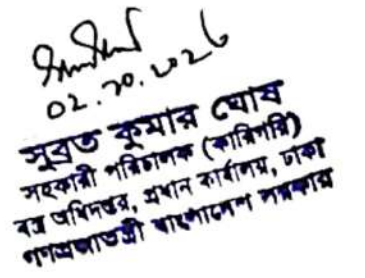 02.10.2026
সুব্রত কুমার ঘোষ
সহকারী পরিচালক (কারিগরি)
বস্ত্র অধিদপ্তর, প্রধান কার্যালয়, ঢাকা
গণপ্রজাতন্ত্রী বাংলাদেশ সরকার